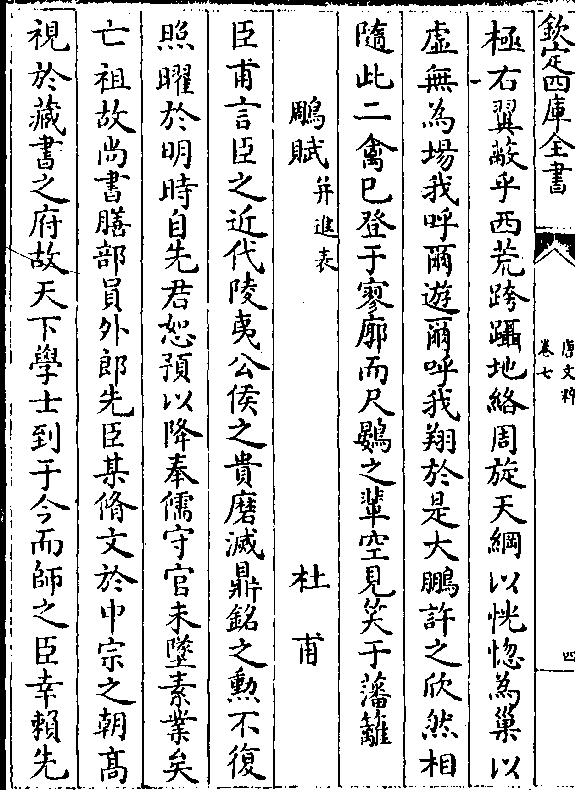 欽定四庫全書
唐文粹
卷七
四
極右翼蔽乎西荒跨躡地絡周旋天綱以恍惚為巢以
虛無為場我呼爾遊爾呼我翔於是大鵬許之欣然相
隨此二禽已登于寥廓而尺鷃之輩空見笑于藩籬
鵰賦并進表
杜甫
臣甫言臣之近代陵夷公侯之貴磨滅鼎銘之勲不復
照曜於明時自先君恕預以降奉儒守官未墜素業矣
亡祖故尚書膳部員外郎先臣某脩文於中宗之朝髙
視於藏書之府故天下學士到于今而師之臣幸賴先